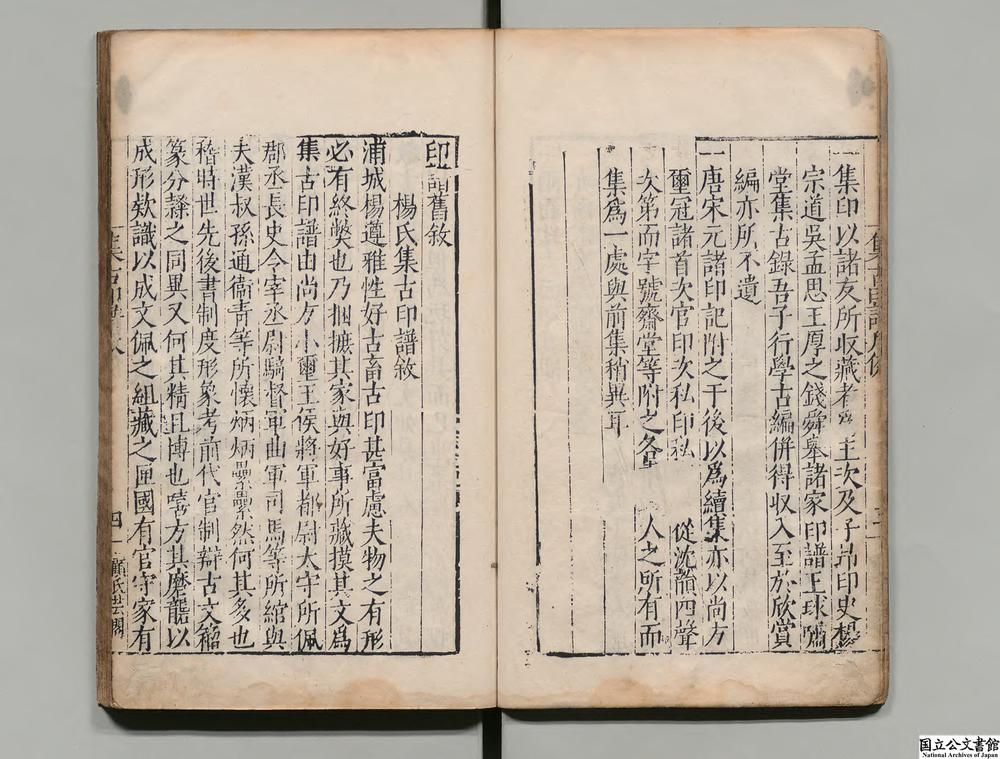 一集印以諸友所収藏者為主次及子昂印史楊
宗道吳孟思王厚之錢舜舉諸家印譜王球嘯
堂集古錄吾子行學古編併得収入至於欣賞
編亦所不遺
一唐宋元諸印記附之于後以為續集亦以尚方
璽冠諸首次官印次私印私 從沈韻四聲
次第而字號齋堂等附之各 人之所有而
集為一處與前集稍異耳
印譜舊敘
楊氏集古印譜敘
浦城楊遵雅性好古畜古印甚富慮夫物之有形
必有終獘也乃捃摭其家與好事所藏摸其文為
集古印譜由尚方小璽王侯將軍都尉太守所佩
郡丞長史令宰丞尉騎督軍曲軍司馬等所綰與
夫漢叔孫通衞青等所懷炳炳纍纍然何其多也
稽時世先後書制度形象考前代官制辯古文籀
篆分隸之同異又何其精且博也嘻方其磨礲以
成形欵識以成文佩之組藏之匣國有官守家有
四
顧氏芸閣
国立公文書館
National Archives of Japan